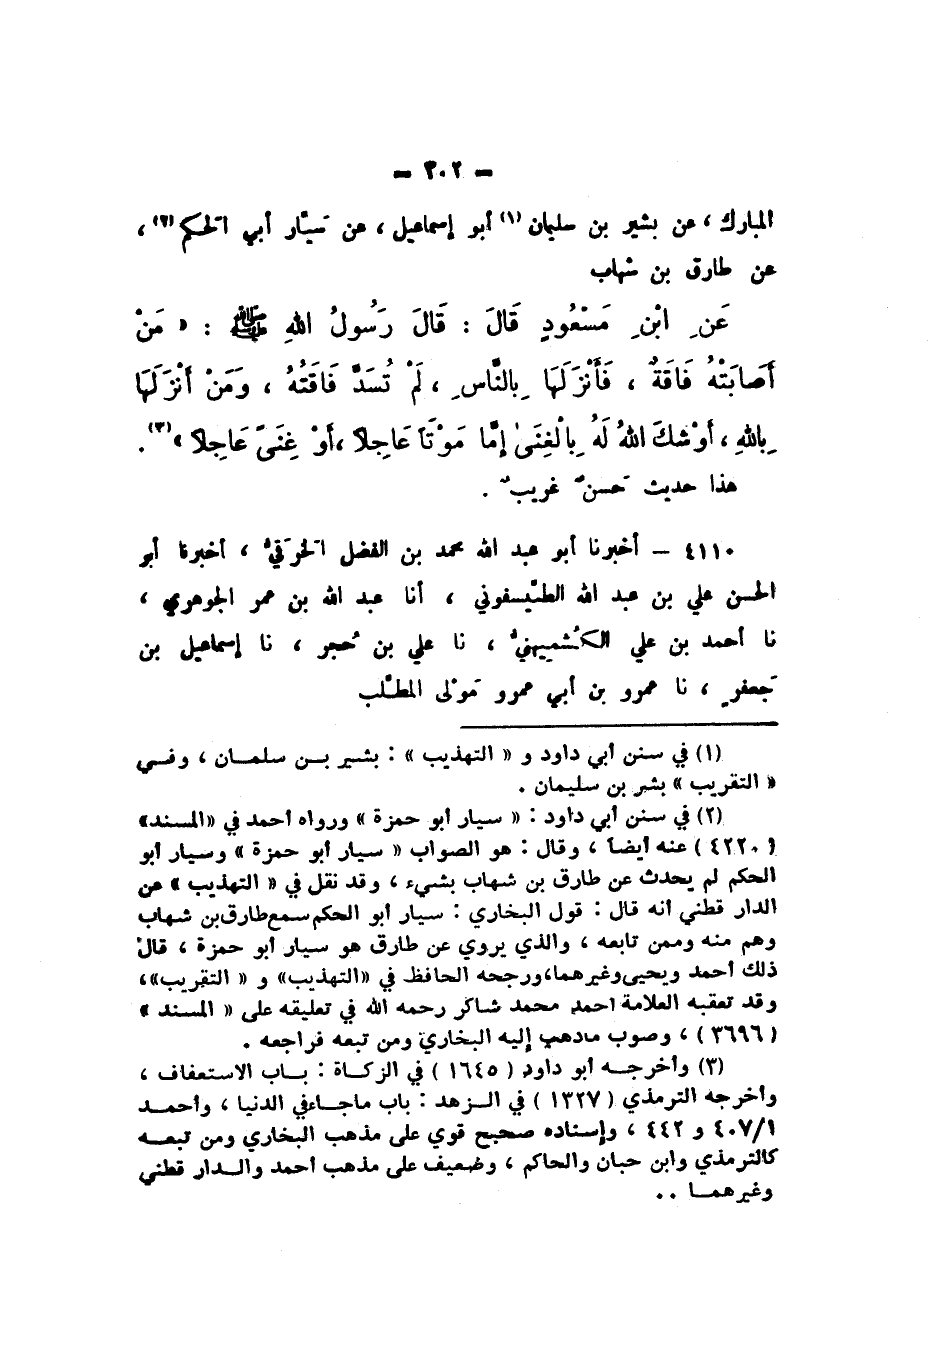 - ٣٠٢ -
المبارك ، عن بشير بن سلمان (١) أبو إسماعيل ، عن سَيَّار أبي الحكم (٢) ،
عن طارق بن شهاب
عَنِ ابْنِ مَسْعُودٍ قَالَ : قَالَ رَسُولُ اللهِ ﷺ : « مَنْ
أَصَابَتْهُ فَاقَةٌ ، فَأَنْزَلَهَا بِالنَّاسِ ، لَمْ تُسَدَّ فَاقَتُهُ ، وَمَنْ أَنْزَلَهَا
بِاللهِ ، أَوْشكَ اللهُ لَهُ بِالْغِنَىٰ إِمَّا مَوْتَاً عَاجِلاً ،أَوْ غِنَىً عَاجِلاً » (٣) .
هذا حديث حَسنٌ غريبٌ .
٤١١٠ – أخبرنا أبو عبد الله محمد بن الفضل الخرَقيُّ ، أخبرنا أبو
الحسن علي بن عبد الله الطيَّسفوني ، أنا عبد الله بن عمر الجوهري ،
نا أحمد بن علي الكُشميهنيُّ ، نا علي بن حُجر ، نا إسماعيل بن
جَعفرٍ ، نا عمرو بن أبي عمرو مَوْلى المطَّلب
(١) في سنن أبي داود و « التهذيب » : بشير بن سلمان ، وفي
« التقريب » بشر بن سليمان .
(٢) في سنن أبي داود : « سيار أبو حمزة » ورواه أحمد في «المسند»
( ٤٢٢٠ ) عنه أيضاً ، وقال : هو الصواب « سيار أبو حمزة » وسيار أبو
الحكم لم يحدث عن طارق بن شهاب بشيء ، وقد نقل في « التهذيب » عن
الدار قطني أنه قال : قول البخاري : سيار أبو الحكم سمع طارق بن شهاب
وهم منه وممن تابعه ، والذي يروي عن طارق هو سيار أبو حمزة ، قال
ذلك أحمد ويحيى وغيرهما،ورجحه الحافظ في «التهذيب» و « التقريب»،
وقد تعقبه العلامة أحمد محمد شاكر رحمه الله في تعليقه على « المسند »
( ٣٦٩٦ ) ، وصوب ماذهب إليه البخاري ومن تبعه فراجعه .
(٣) وأخرجه أبو داود ( ١٦٤٥ ) في الزكاة : باب الاستعفاف ،
وأخرجه الترمذي ( ١٣٢٧ ) في الزهد : باب ماجاءفي الدنيا ، وأحمد
٤٠٧/١ و ٤٤٢ ، وإسناده صحيح قوي على مذهب البخاري ومن تبعه
كالترمذي وابن حبان والحاكم ، وضعيف على مذهب أحمد والدار قطني
وغيرهما . .